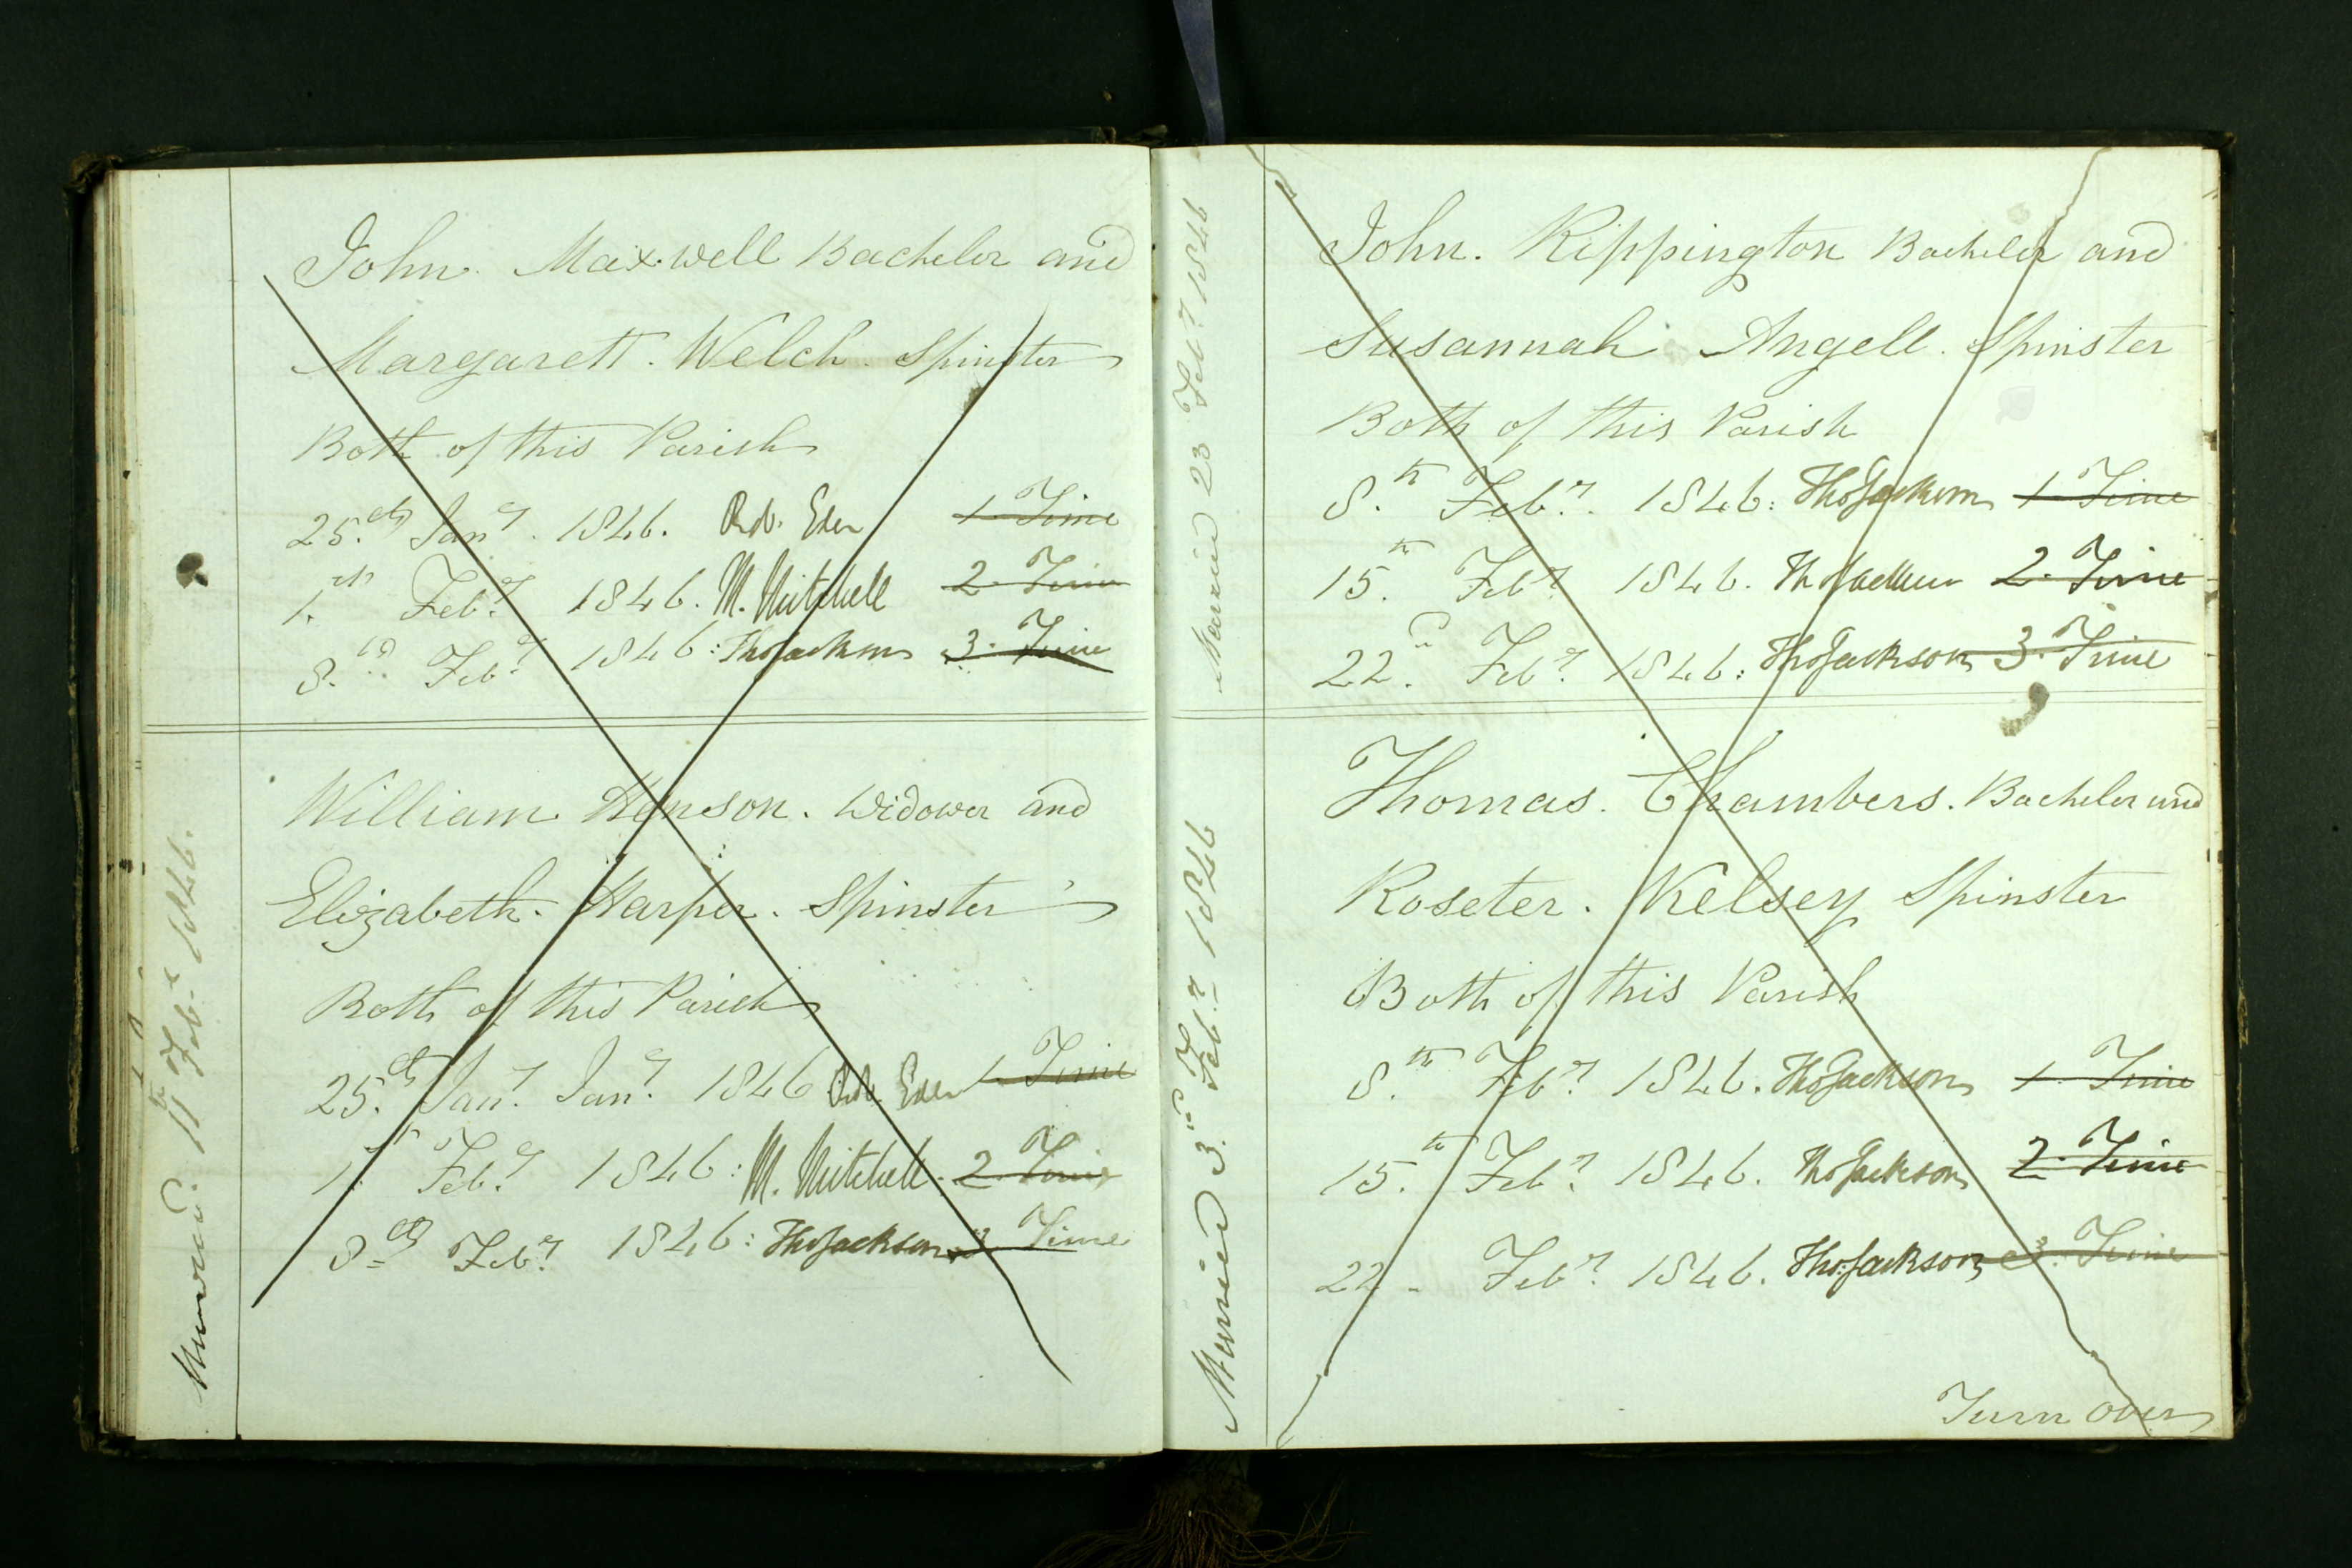 John. Maxwell Bachelor and
Margarett. Welch. Spinster
Both of this Parish
25.th Jany. 1846. Rob. Eden 1. Time
1. Feby 1846. M. Mitchell 2. Time
8.th Feby 1846: Thos Jackson 3. Time
Married. 11th Feby 1846.
William Henson. Widower and
Elizabeth. Harper. Spinster
Both of this Parish
25.th Jany. Jany. 1846 Rob. Eden 1. Time
1. Feby 1846: M. Mitchell. 2. Time
8th Feby 1846: Thos Jackson 3. Time
Married 23 Feby 1846
John. Rippington Bachelor and
Susannah Angell. Spinster
Both of this Parish
8.th Feby. 1846: Thos Jackson 1. Time
15.th Feby 1846. Thos Jackson 2. Time
22.d Feby. 1846: Thos Jackson 3. Time
Married 3.d Feby 1846
Thomas. Chambers. Bachelor and
Roseter. Kelsey Spinster
Both of this Parish
8.th Feby. 1846. Thos Jackson 1. Time
15.th Feby. 1846. Thos Jackson 2. Time
22 - Feby. 1846. Thos: Jackson 3. Time
Turn over